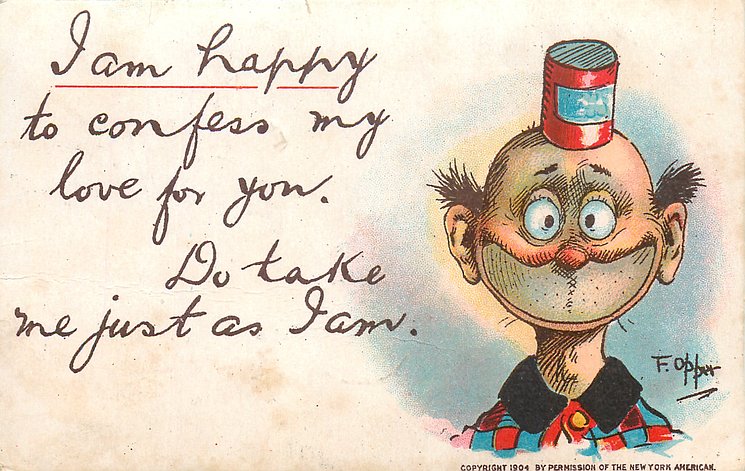 I am happy
to confess my
love for you.
Do take
me just as I am.
F. Opper
COPYRIGHT 1904 BY PERMISSION OF THE NEW YORK AMERICAN.